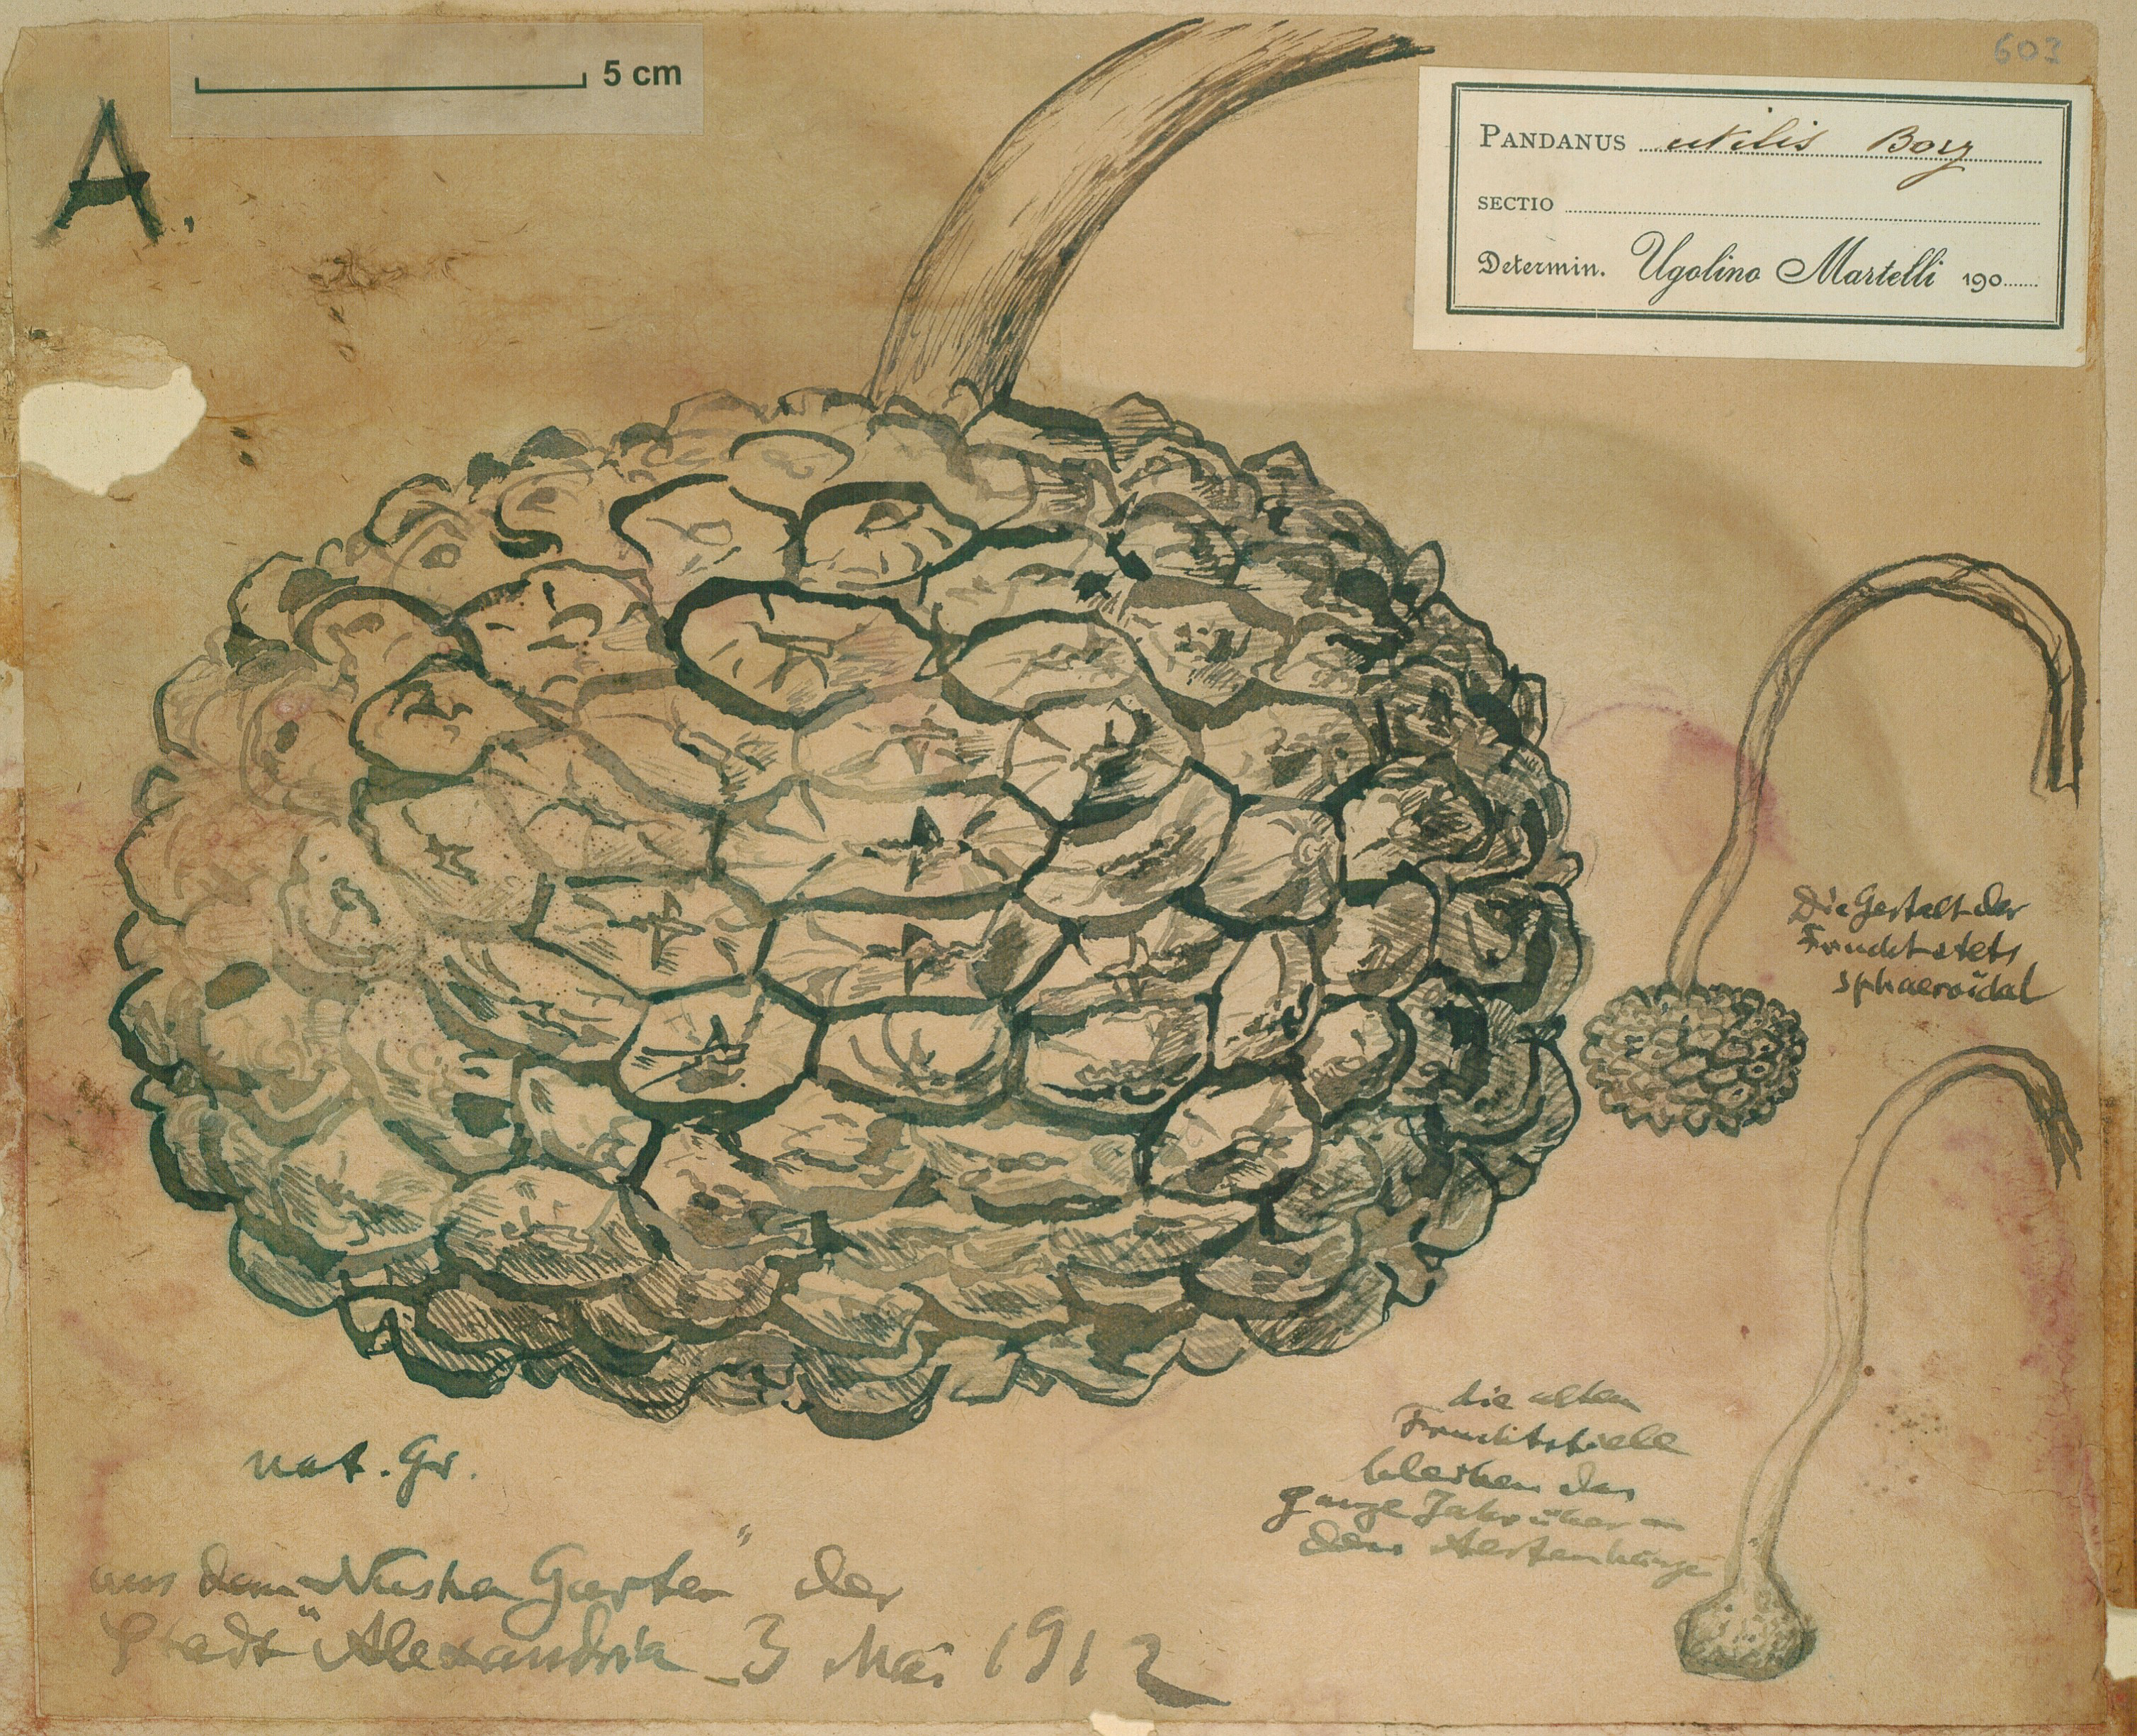 5 cm
603
A.
PANDANUS utilis Bory
SECTIO
Determin. Ugolino Martelli 190
Die Gestalt der
Frucht stets
sphaeroidal
die alten
Fruchtstiele
bleiben das
ganze Jahr über an
den Aesten hängen
nat. Gr.
aus dem „Nusha Garten" der
Stadt Alexandria 3 Mai 1912